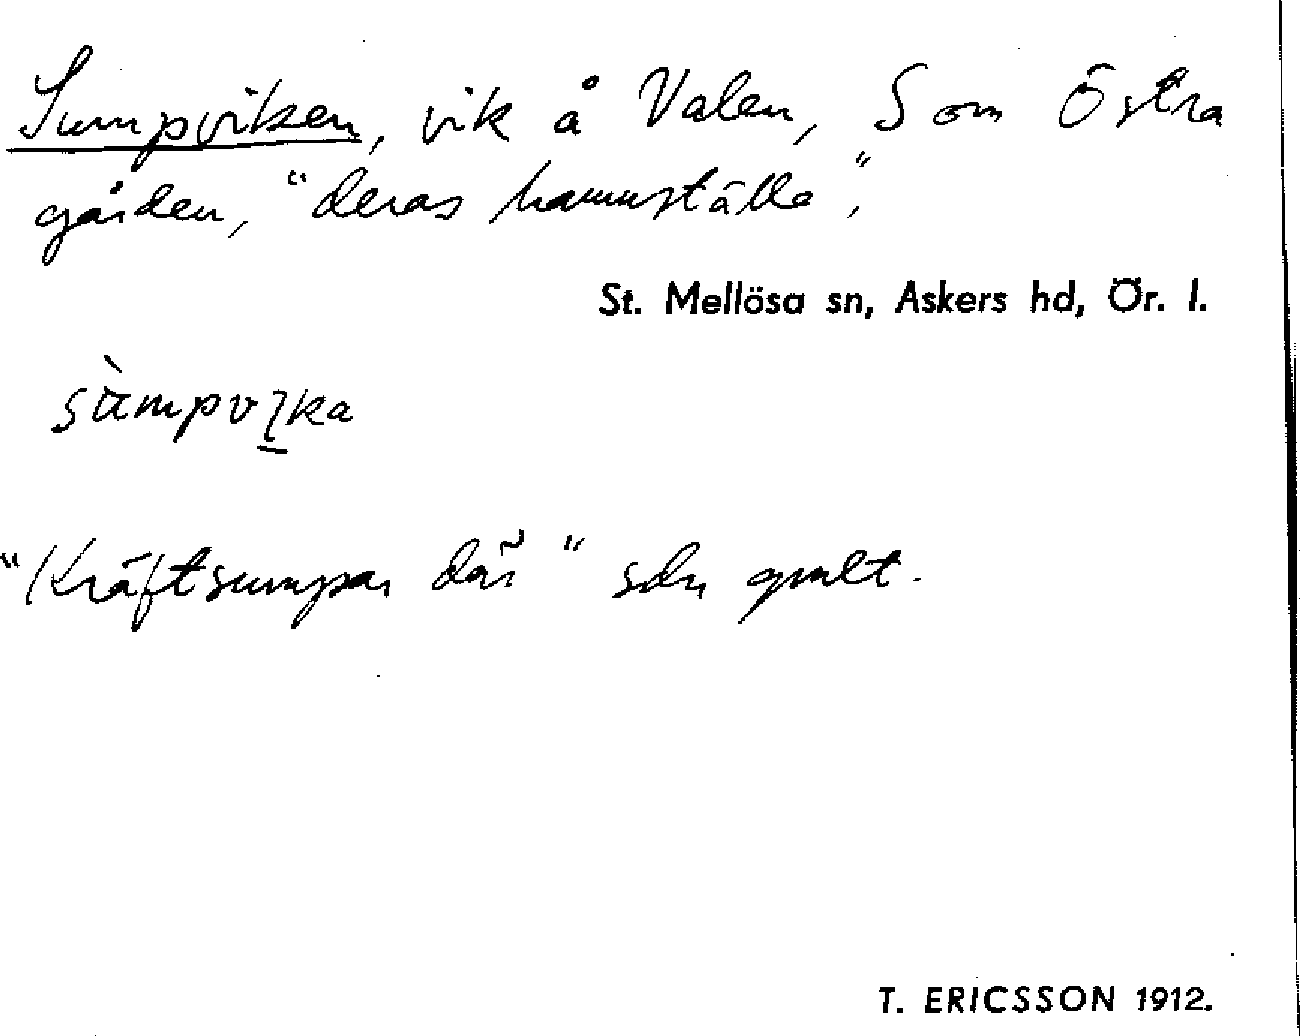 Sumpviken, vik å Valen, S om Östra
gården, "deras hamnställe",
St. Mellösa sn, Askers hd, Ör. l.
sùmpvika
"Kräftsumpar där" sdn gmlt.
T. ERICSSON 1912.